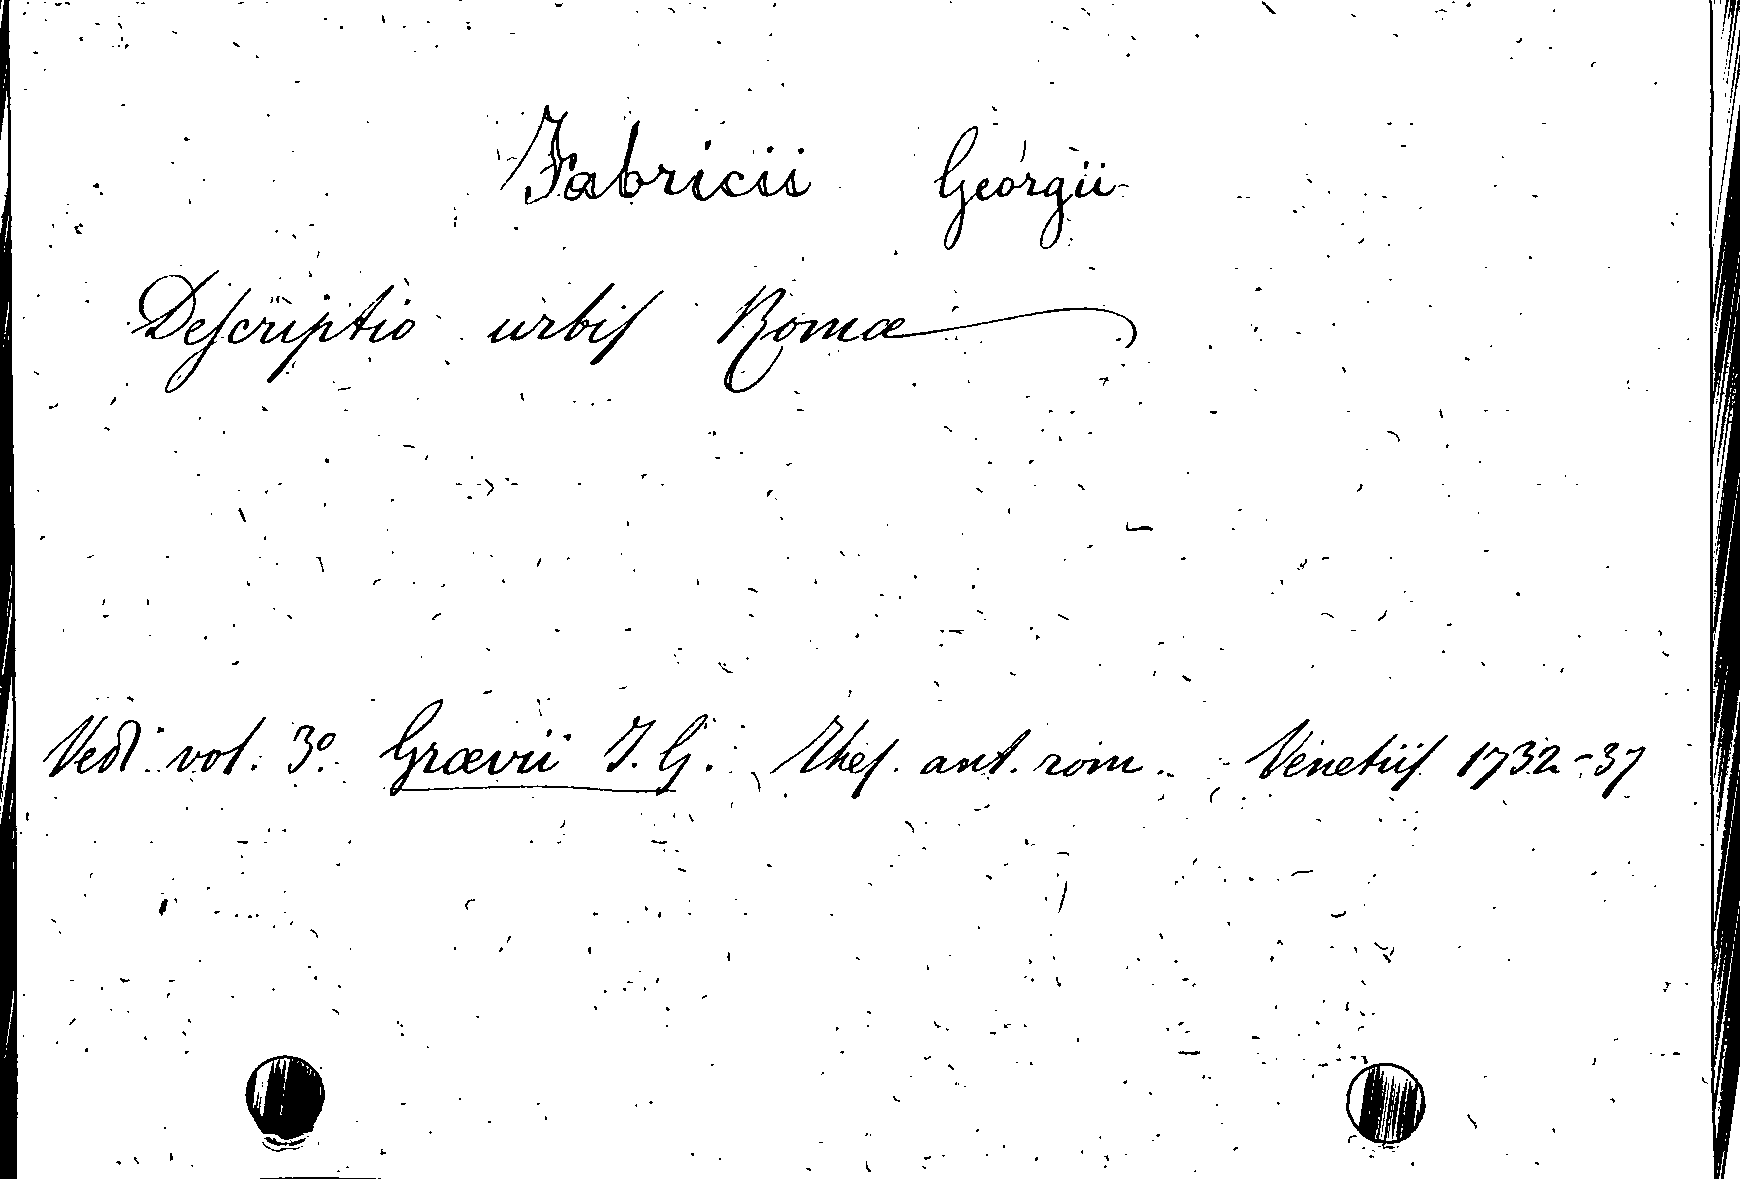 Fabricii Georgii
Deſcriptio urbiſ Romæ
Vedi vol. 3º. Grævii J. G. Theſ. ant. rom. Venetiiſ 1732-37